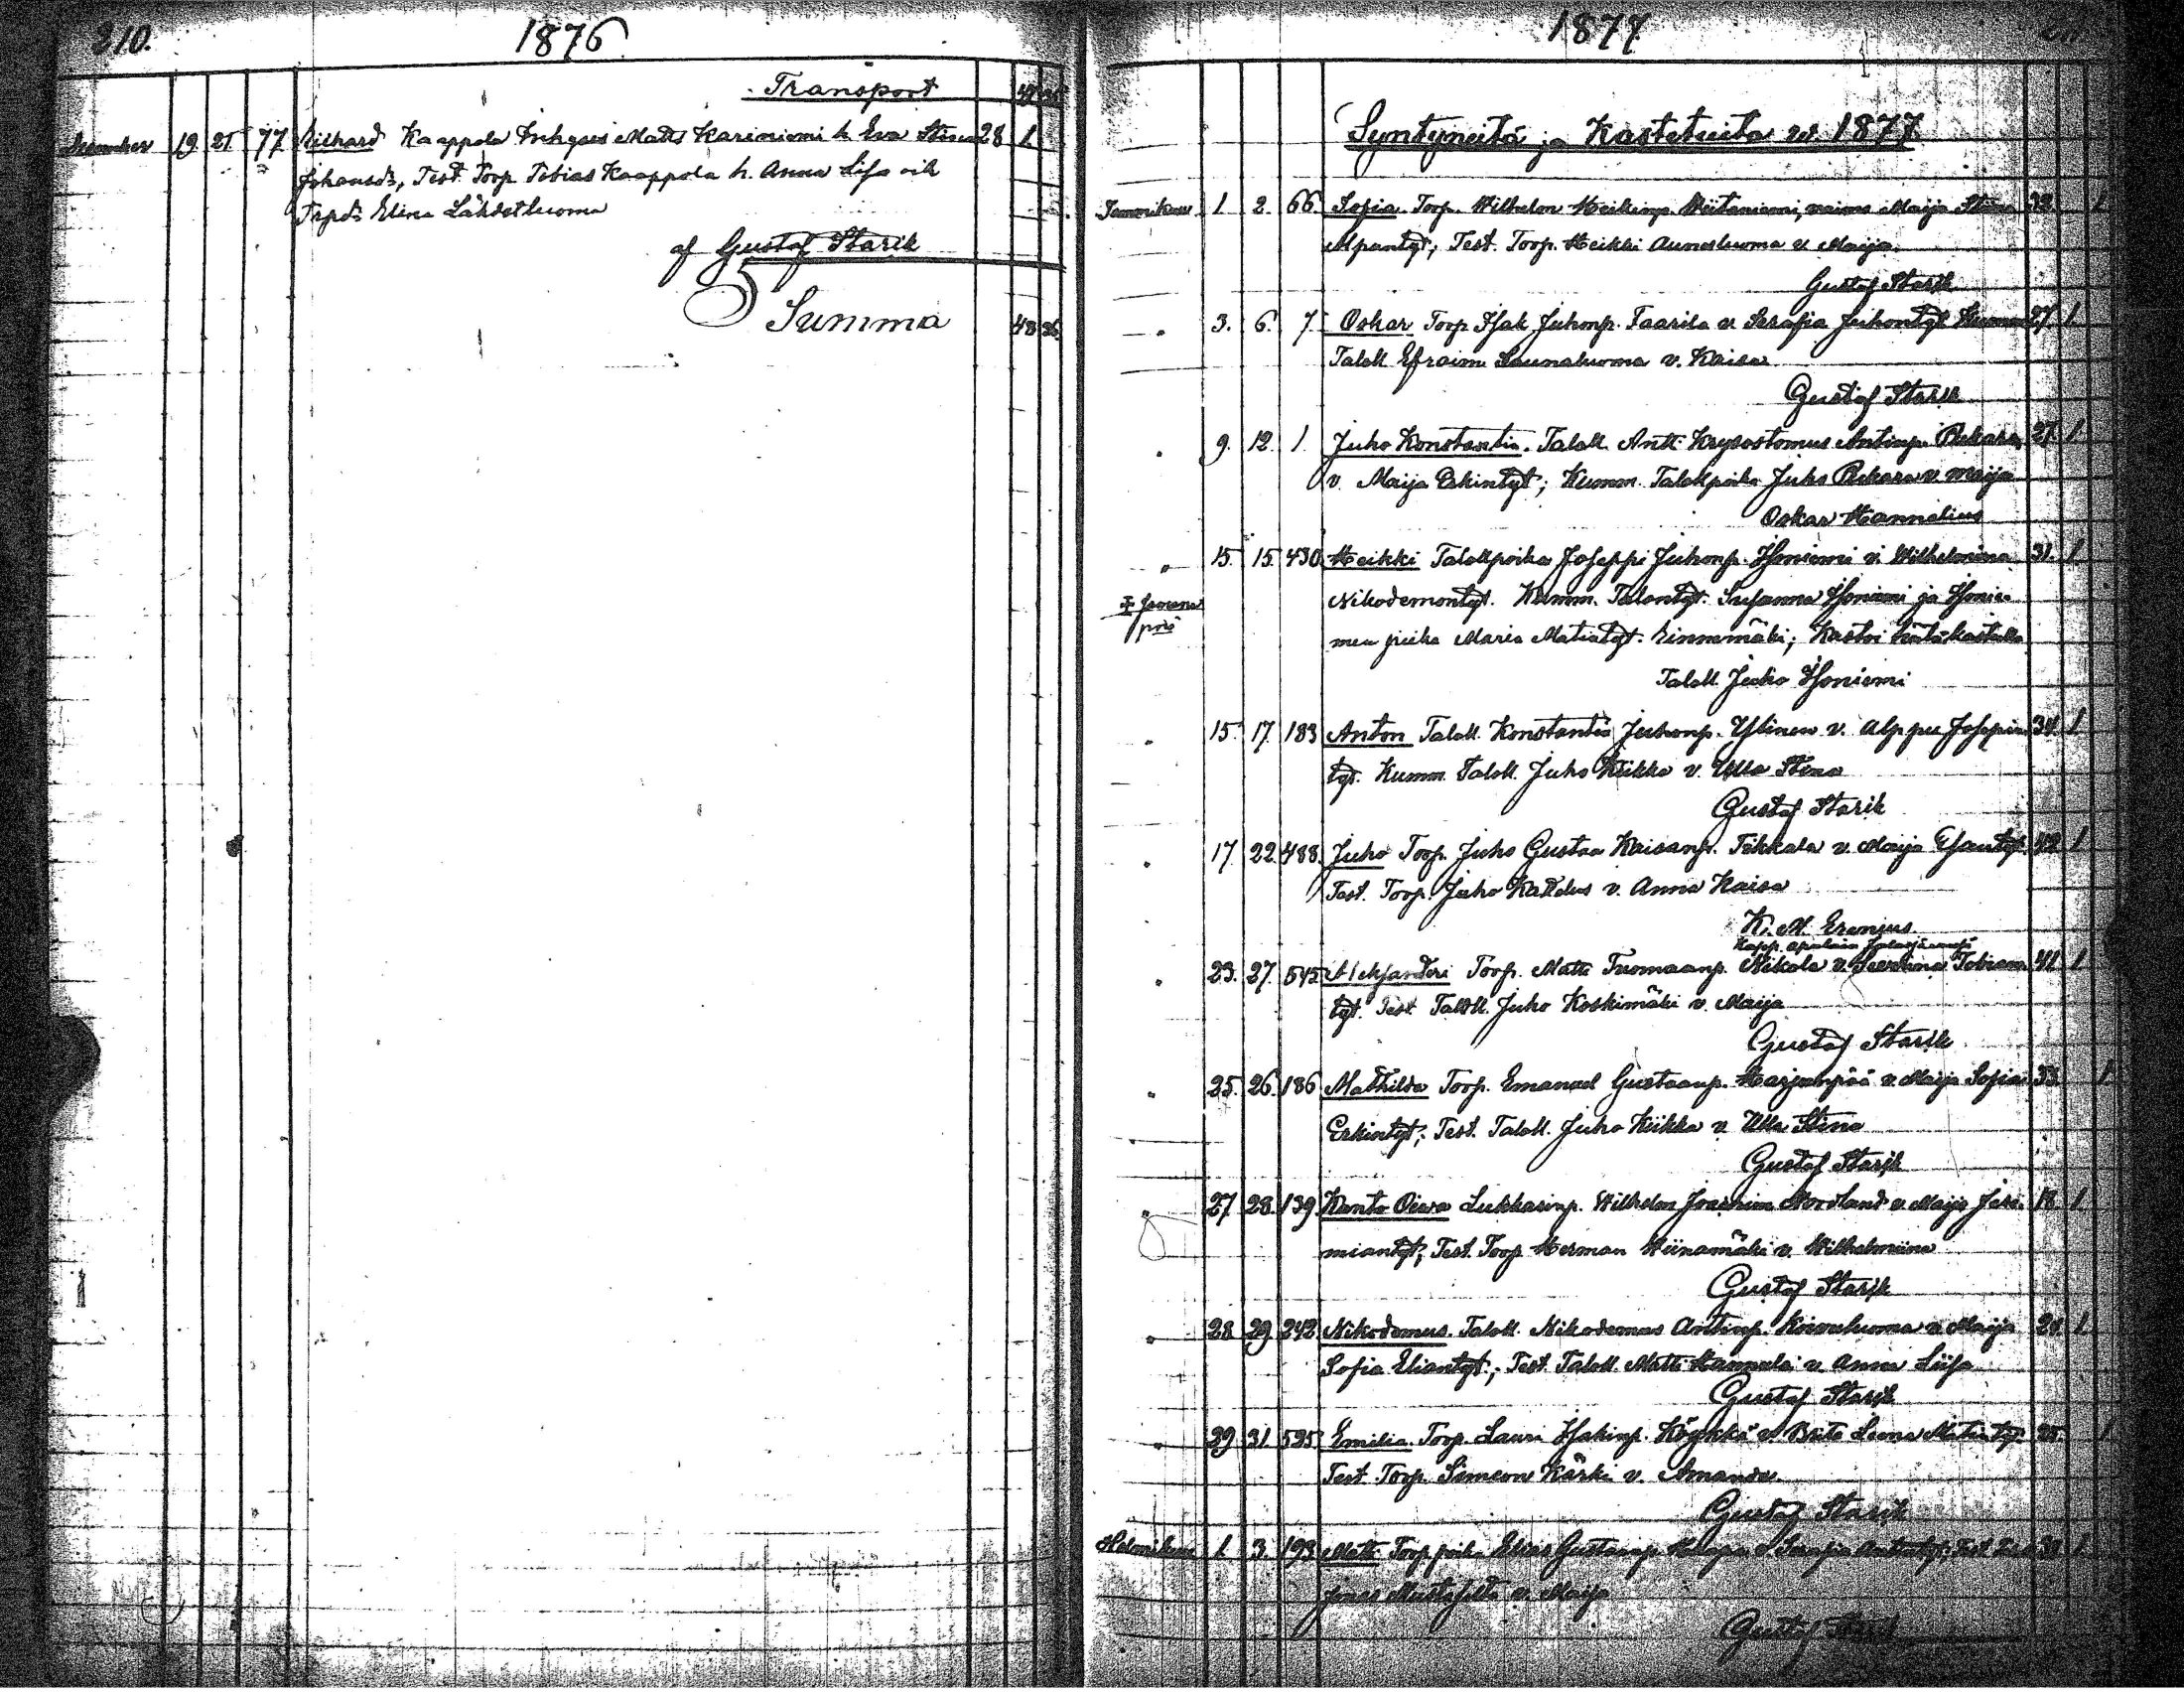 210.
1876
Transport
December 19 21 77 Richard Kaappola Inhyses Matts Kariniemi h. Eva Stina 28 1
Johansdr, Test. Torp. Tobias Kaappola h. Anna Lisa och
Trpdr Elina Lähdetluoma
af Gustaf Starik
Summa 43 36
1877
Syntyneitä ja Kastetuita v. 1877
Tammikuu 1 2. 66 Sofia Torp. Wilhelm Heikinp. Wiitaniemi, vaimo Maija Stina 1
Test. Torp. Heikki Aunesluoma v. Maija
Gustaf Starik
3. 6. 7 Oskar Torp. Isak Juhonp. Taarila v. Serafia Juhontyt. 27 1
Taloll Efraim Saunaluoma v. Kaisa
Gustaf Starik
9. 12. 1 Juho Konstantin. Taloll. Antti Krysostomus Antinp. Pukara, 27. 1
v. Maija Erkintyt; Kumm. Talollpoika Juho Pukara v. Maija
Oskar Hannelius
15. 15. 430 Heikki Talollpoika Joseppi Juhonp. Isoniemi v. Wilhelmina 31. 1
Nikodemontyt. Kumm. Talontyt. Susanna Isoniemi ja Isonie-
men piika Maria Matintyt. ; Kastoi hätäkastella
Taloll. Juho Isoniemi
15. 17. 183 Anton Taloll. Konstantin Juhonp. Ylinen v. Alppu Josepin 34. 1
tyt. Kumm. Taloll. Juho Kiikka v. Ulla Stina
Gustaf Starik
17. 22. 488. Juho Torp. Juho Gustaa Kaisanp. Tikkala v. Maija 42 1
Test. Torp. Juho v. Anna Kaisa
K. M. Erenius
Kapp. apulain
23. 27. 545 Aleksanderi Torp. Matti Tuomaanp. Nikola v. Tobiaan 41 1
tyt. Test. Taloll. Juho Koskimäki v. Maija
Gustaf Starik
25. 26. 186 Mathilda Torp. Emanuel Gustaanp. Harjunpää v. Maija Sofia 33 1
Erkintyt; Test. Taloll. Juho Kiikka v. Ulla Stina
Gustaf Starik
27. 28. 139 Kanto Oiva Lukkarinp. Wilhelm Joachim Nordlund v. Maija Jere- 18. 1
miantyt; Test. Torp. Herman Wiinamäki v. Wilhelmiina
Gustaf Starik
28 29 242 Nikodemus. Taloll. Nikodemus Antinp. Koivuluoma v. Maija 24 1
Sofia Eliantyt; Test. Taloll. Matti Hannula v. Anna Liisa
Gustaf Starik
29 31. 525 Emilia. Torp. Lauri Isakinp. Köykkä v. Brita Leena Matintyt. 25 1
Test. Torp. Simeon Kärki v. Amanda
Gustaf Starik
Helmikuu 1. 3. 193 Matti Torppoika Elias Gustaanp.
Jonas v. Maija
Gustaf Starik